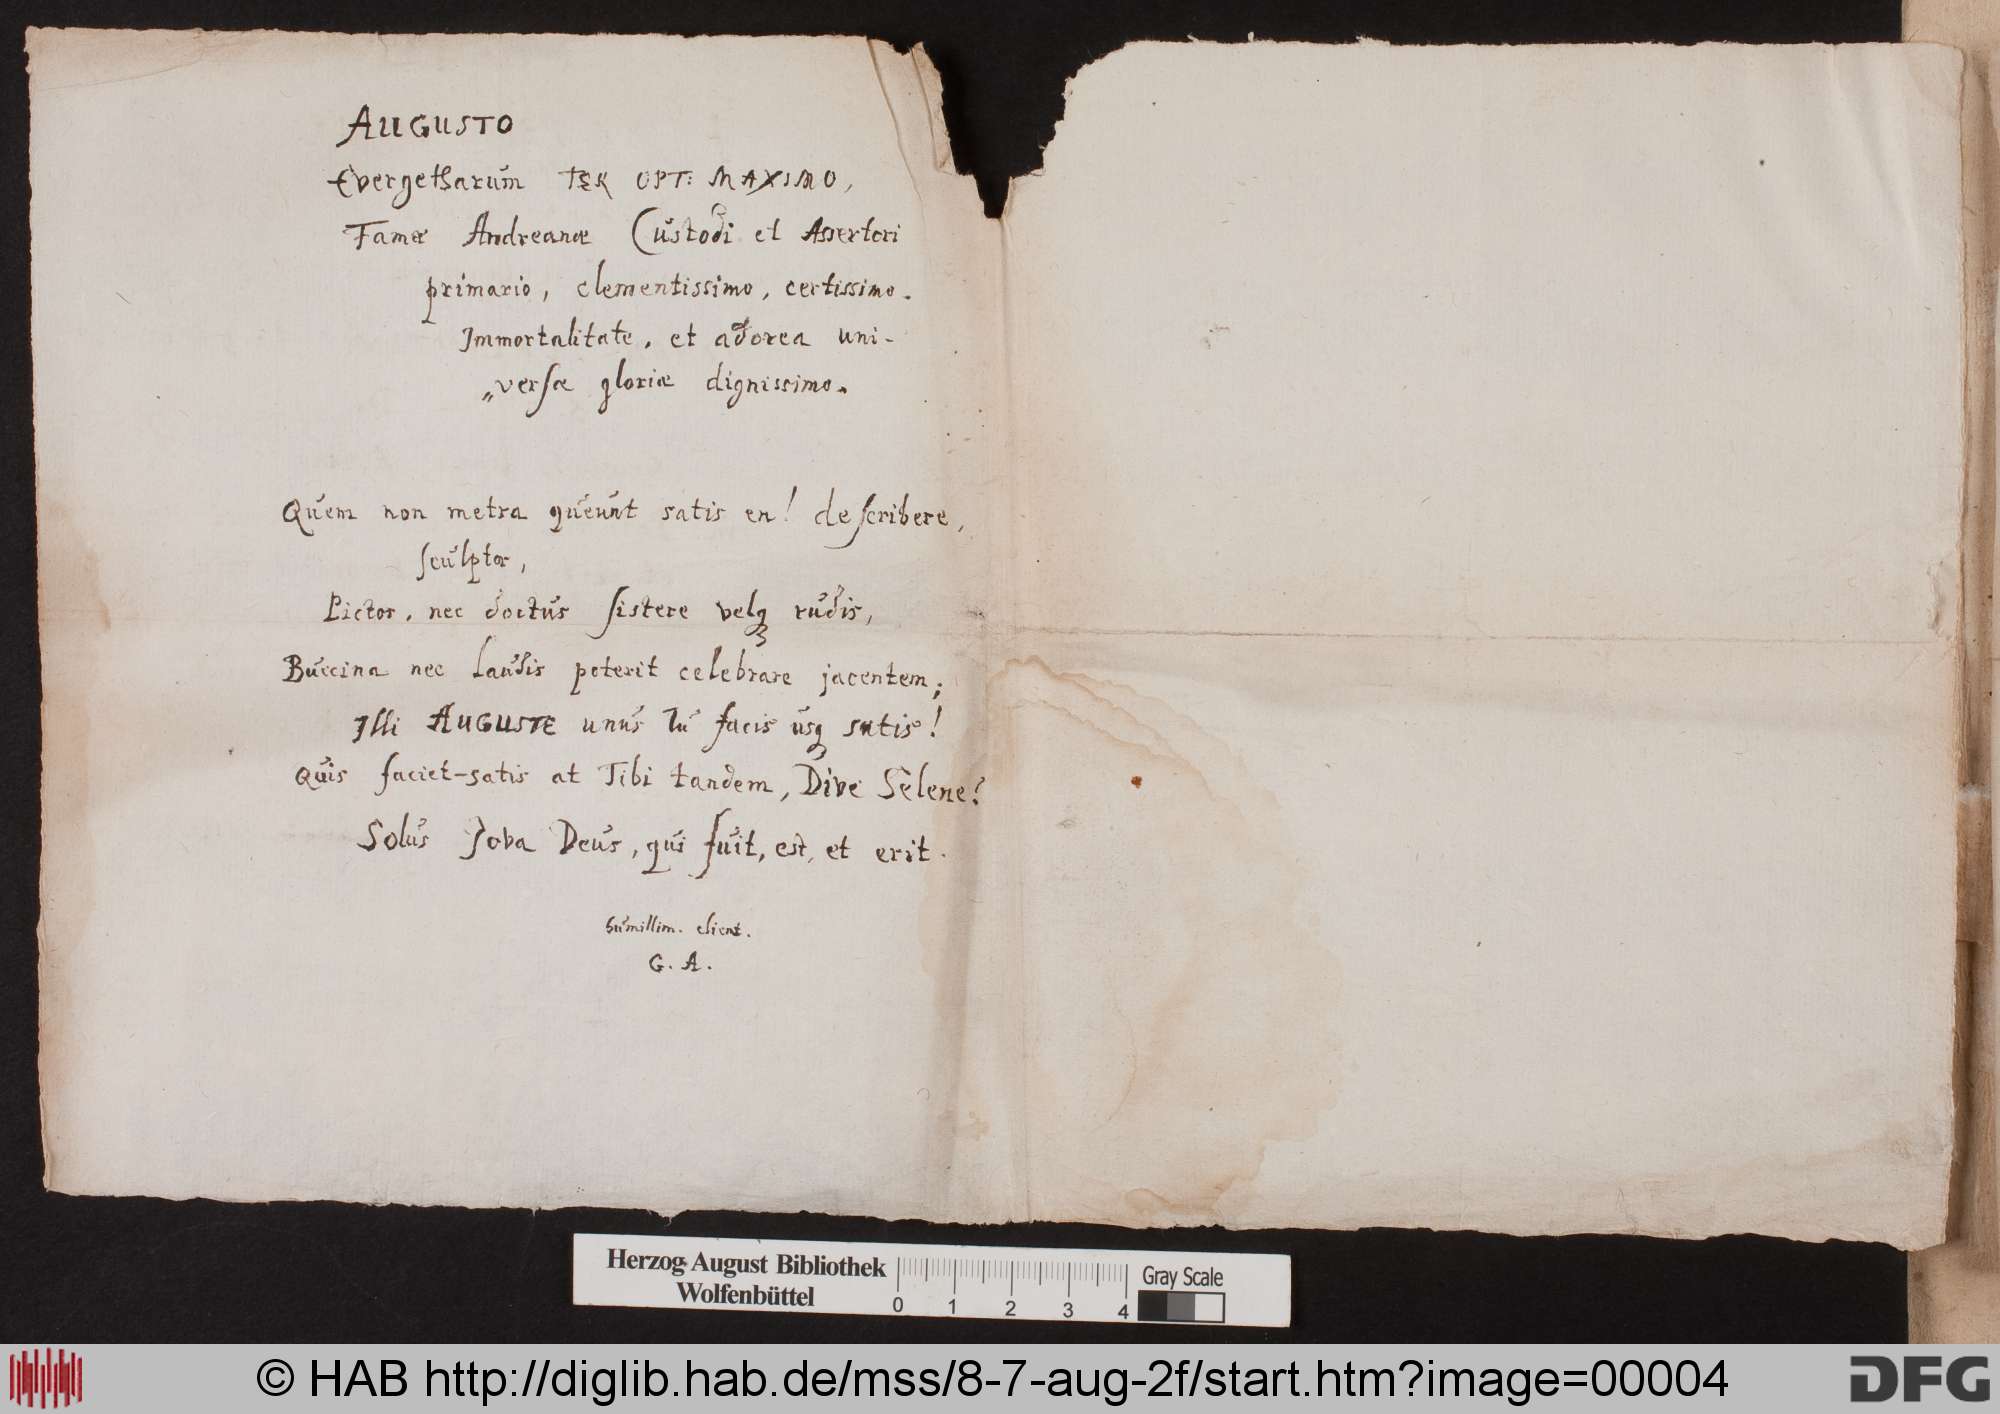 AUGUSTO
Evergetharum TER OPT: MAXIMO,
Famæ Andreanæ Custodi et Assertori
primario, clementissimo, certissimo.
Immortalitate, et adorea uni-
„versæ gloriæ dignissimo.
Quem non metra queunt satis en! describere,
sculptor,
Pictor, nec doctus sistere velq3 rudis,
Buccina nec laudis poterit celebrare jacentem;
Illi AUGUSTE unus Tu facis usq3 satis!
Quis faciet-satis at Tibi tandem, Dive Selene?
Solus Jova Deus, qui fuit, est, et erit.
humillim. client.
G. A.
Herzog August Bibliothek
Wolfenbüttel
0 1 2 3 4
Gray Scale
© HAB http://diglib.hab.de/mss/8-7-aug-2f/start.htm?image=00004
DFG